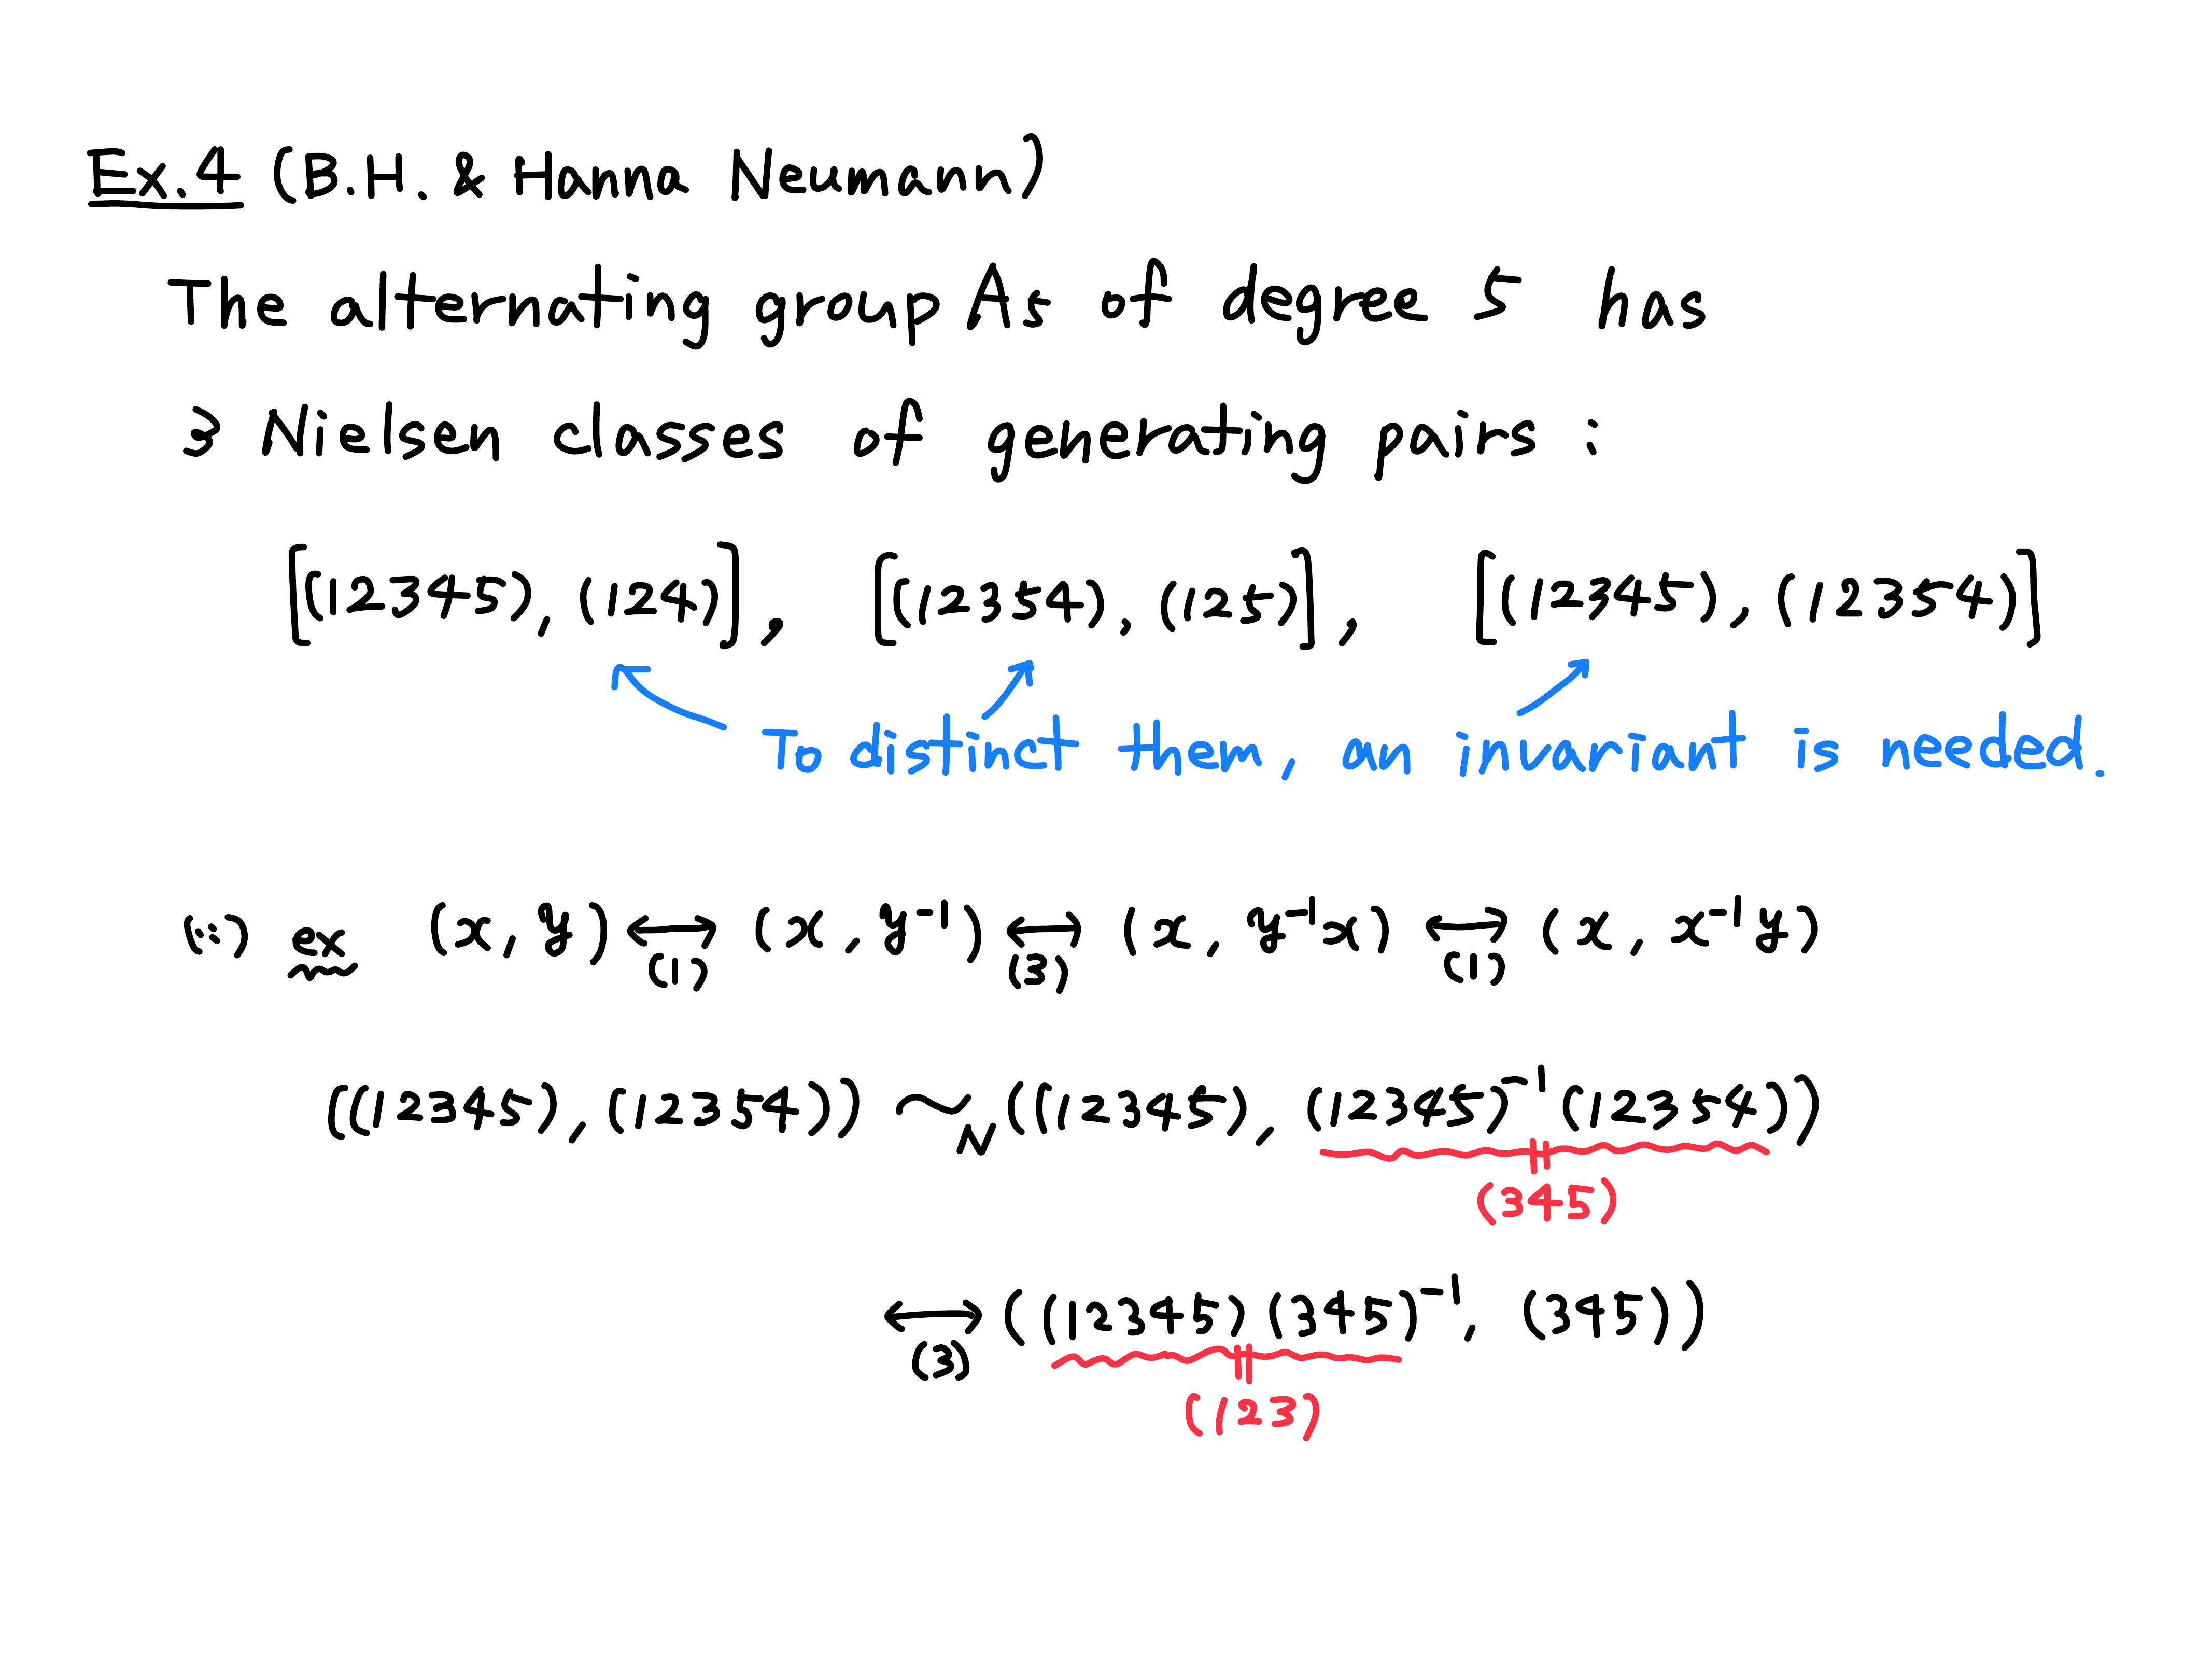 Ex.4 (B.H. & Hanna Neumann)
The alternating group A₅ of degree 5 has
3 Nielsen classes of generating pairs :
[(12345), (124)], [(12354), (125)], [(12345), (12354)]
To distinct them, an invariant is needed.
(∵) ex (x, y) ⟷(1) (x, y⁻¹) ⟷(3) (x, y⁻¹x) ⟷(1) (x, x⁻¹y)
((12345), (12354)) ~N ((12345), (12345)⁻¹(12354))
(345)
⟷(3) ((12345)(345)⁻¹, (345))
(123)